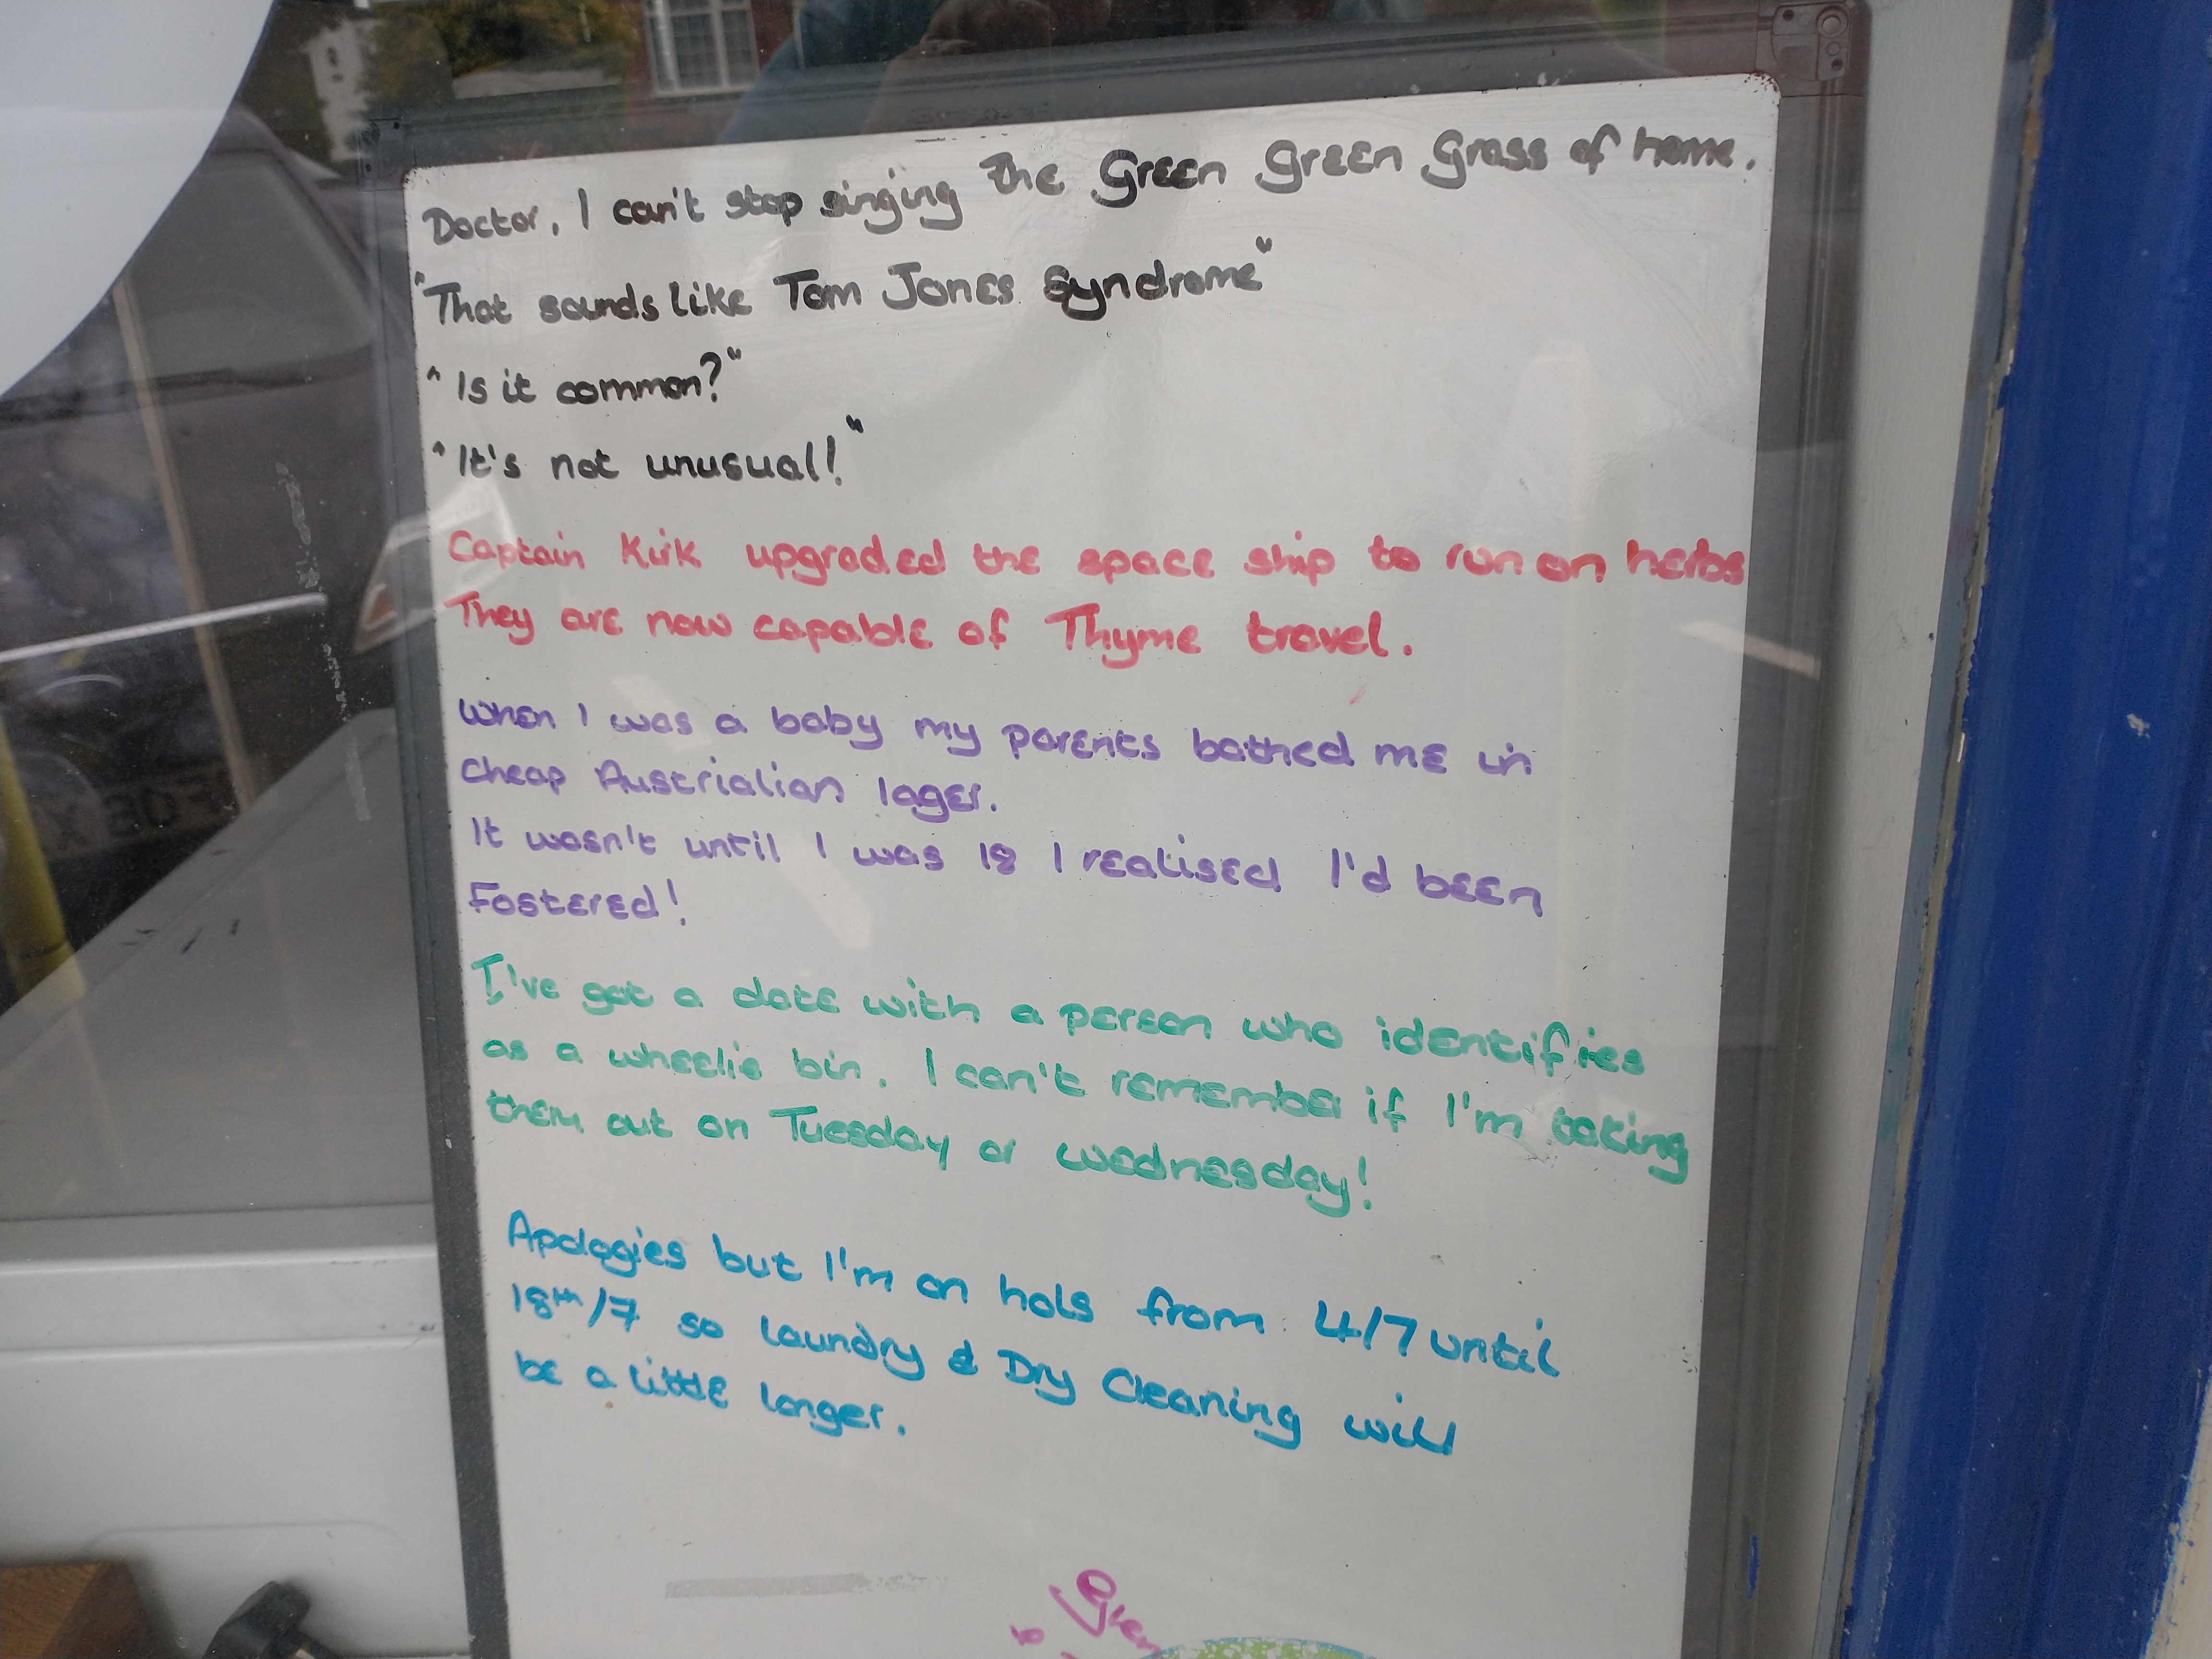 Doctor, I can't stop singing the Green Green Grass of home.
"That sounds like Tom Jones Syndrome"
"Is it common?"
"It's not unusual!"
Captain Kirk upgraded the space ship to run on herbs
They are now capable of Thyme travel.
When I was a baby my parents bathed me in
cheap Austrialian lager.
It wasn't until I was 18 I realised I'd been
Fostered!
I've got a date with a person who identifies
as a wheelie bin. I can't remember if I'm taking
them out on Tuesday or Wednesday!
Apologies but I'm on hols from 4/7 until
18th/7 so Laundry & Dry Cleaning will
be a little longer.